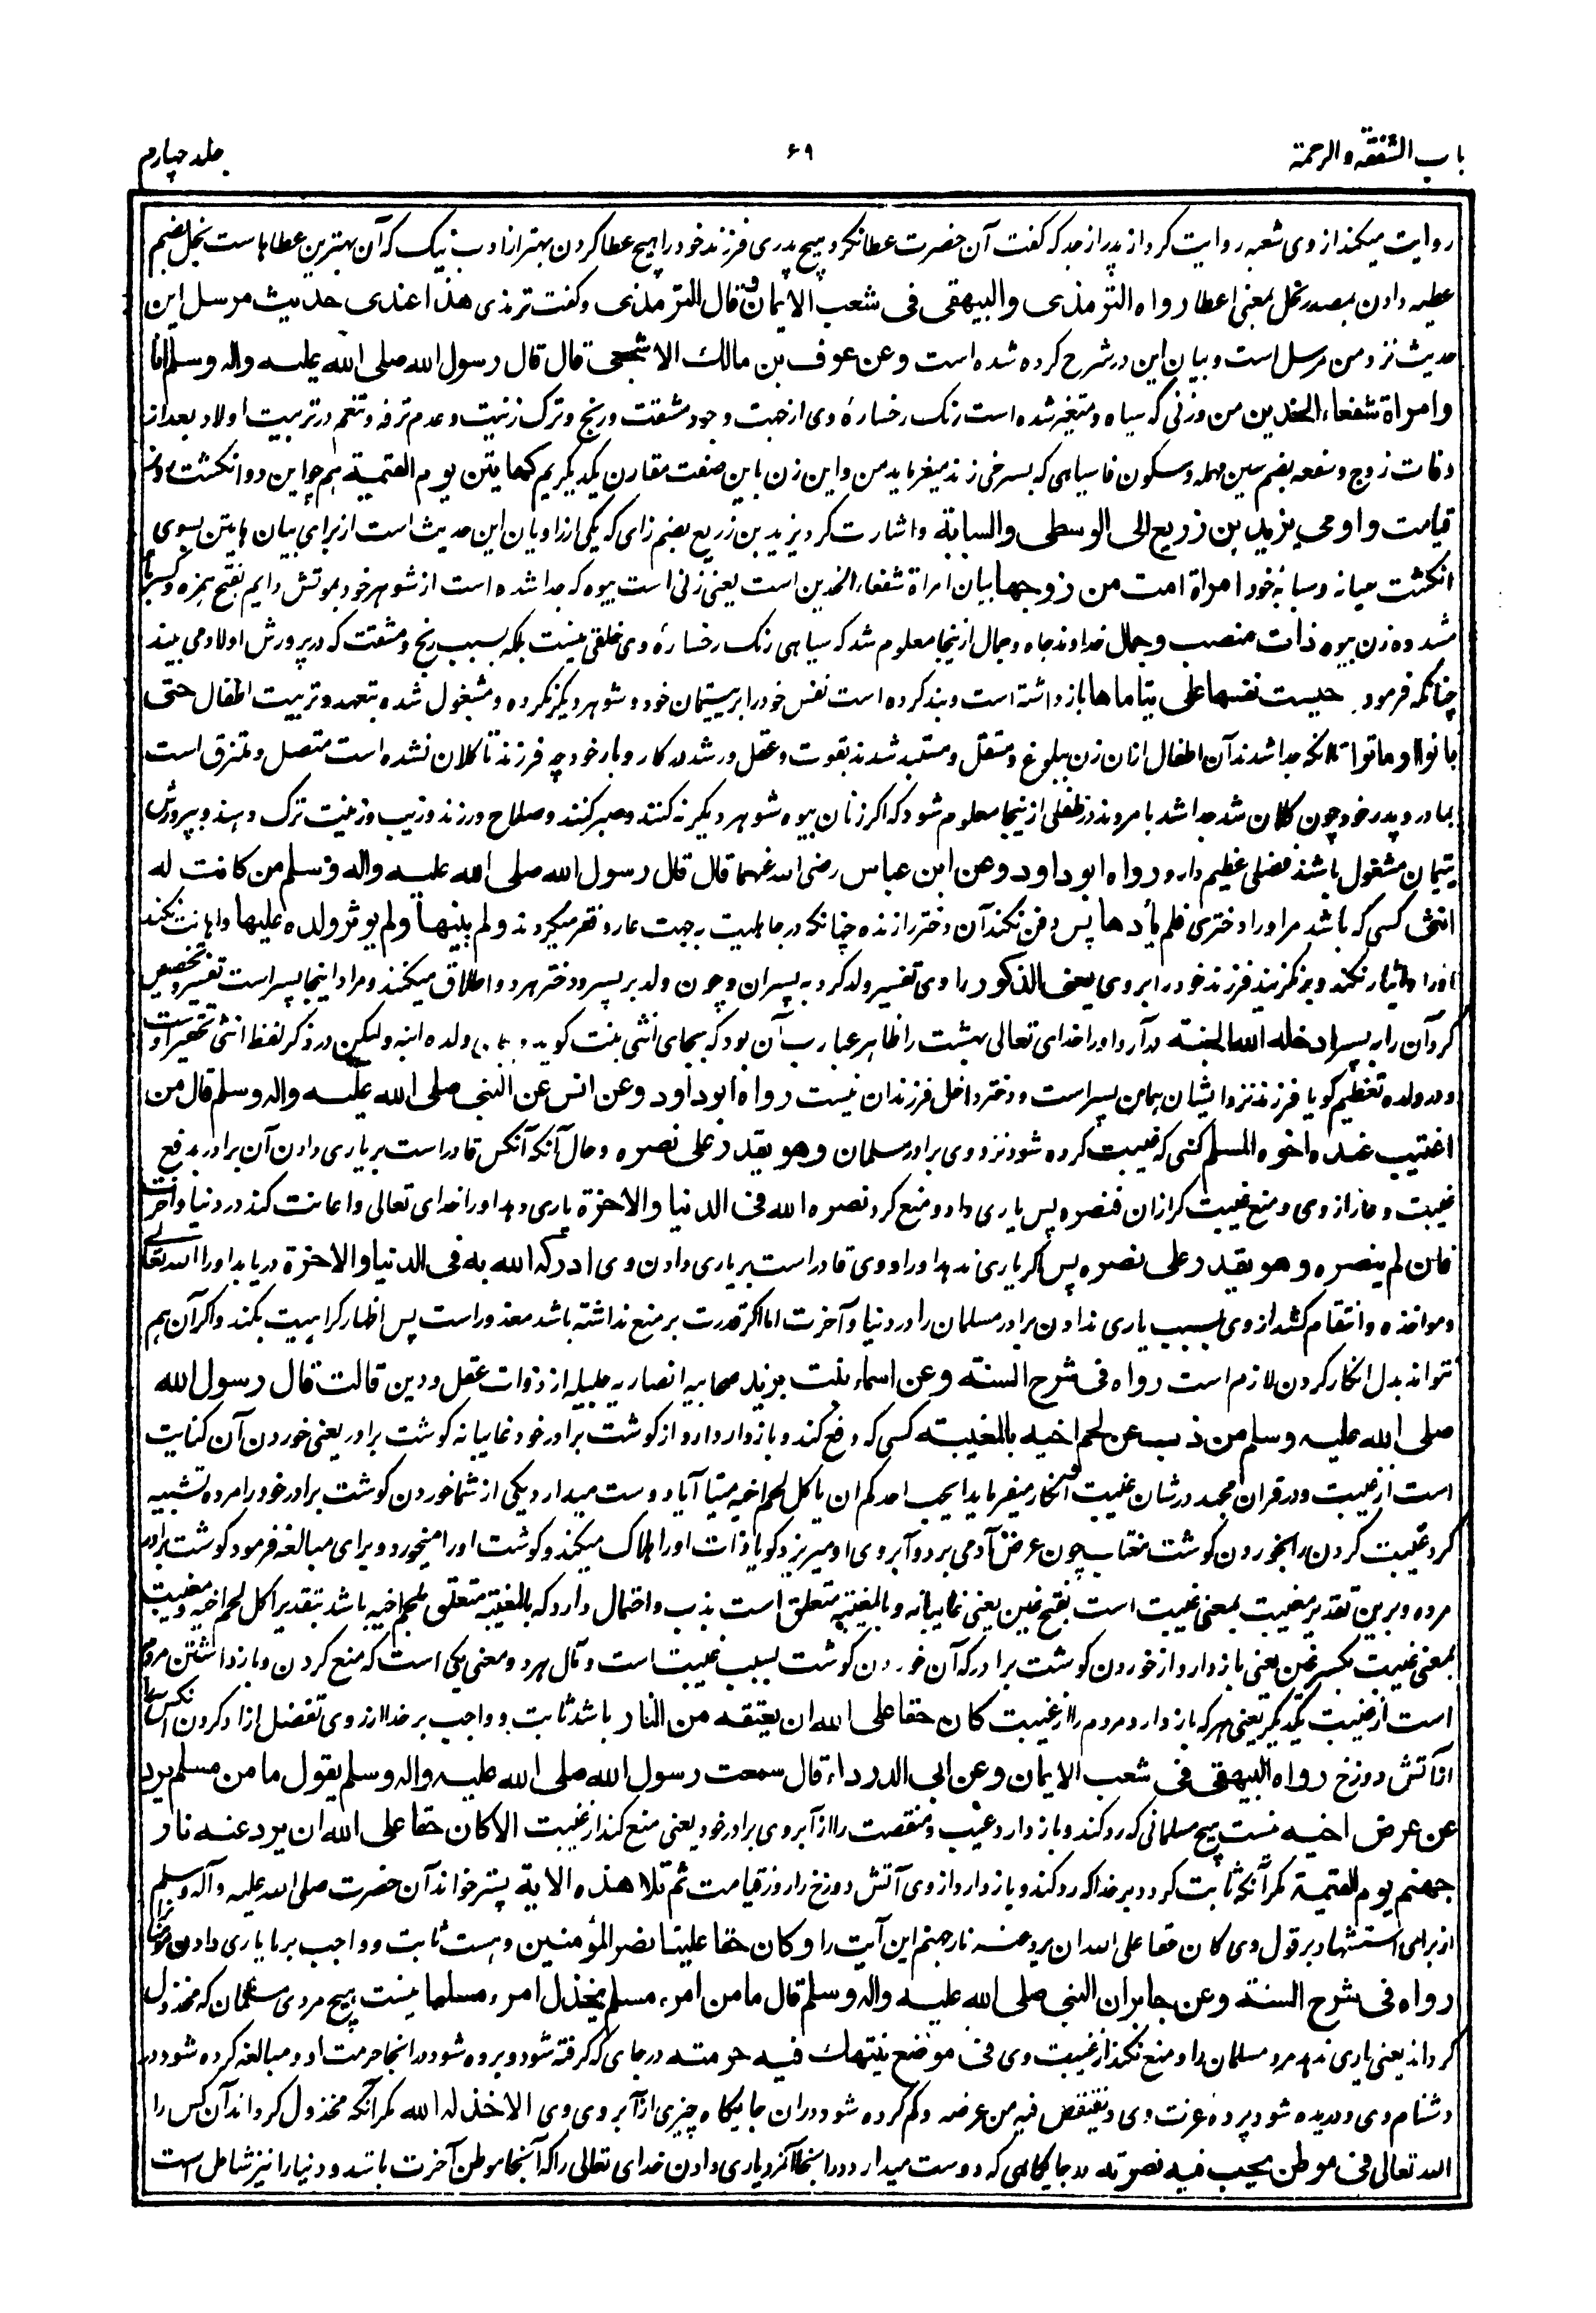 باب الشفقة والرحمة
۶۹
جلد چهارم
روایت میکند از وی شعبه روایت کرد از پدر از جد که گفت آن حضرت عطا نکرد هیچ پدری فرزند خود را هیچ عطا کردن بهتر از ادب نیک که آن بهترین عطاهاست نحل بضم
عطیه دادن بمصدر نحل بمعنی اعطا رواه الترمذی والبیهقی فی شعب الایمان وقال الترمذی و گفت ترمذی هذا عندی حدیث مرسل این
حدیث نزد من مرسل است و بیان این در شرح کرده شده است وعن عوف بن مالك الاشجعی قال قال رسول الله صلی الله علیه واله وسلم انا
وامراة سفعاء الخدین من و زنی که سیاه و متغیر شده است رنگ رخسارهٔ وی از جهت وجود مشقت و رنج و ترک زینت و عدم ترفه و تنعم در تربیت اولاد بعد از
وفات زوج و سفعه بضم سین مهمله و سکون فا سیاهی که بسرخی زند میفرماید من و این زن باین صفت مقارن یکدیگریم کهاتین یوم القیمة همچو این دو انگشت روز
قیامت واومی یزید بن زریع الی الوسطی والسبابة و اشارت کرد یزید بن زریع بضم زای که یکی از راویان این حدیث است از برای بیان هاتین بسوی
انگشت میانه و سبابه خود امراة امت من زوجها بیان امراة سفعاء الخدین است یعنی زنی است بیوه که جدا شده است از شوهر خود بموتش و ایم بفتح همزه و کسر یا
مشدده زن بیوه ذات منصب وجمال خداوند جاه و جمال ازینجا معلوم شد که سیاهی رنگ رخسارهٔ وی خلقی نیست بلکه بسبب رنج و مشقتست که در پرورش اولاد می بیند
چنانکه فرمود حبست نفسها علی یتاماها باز داشته است و بند کرده است نفس خود را بر یتیمان خود و شوهر دیگر نکرده و مشغول شده بتعهد و تربیت اطفال حتی
بانوا او ماتوا تا آنکه جدا شدند آن اطفال ازان زن ببلوغ و مستقل و مستبد شدند بقوت و عقل و رشد در کار و بار خود چه فرزند تا کلان نشده است متصل و ملتزق است
بمادر و پدر خود چون کلان شد جدا شد یا مردند در طفلی ازینجا معلوم شود که اگر زنان بیوه شوهر دیگر نه کنند و صبر کنند و صلاح ورزند و زیب و زینت ترک دهند و بپرورش
یتیمان مشغول باشند فضلی عظیم دارد رواه ابوداود وعن ابن عباس رضی الله عنهما قال قال رسول الله صلی الله علیه واله وسلم من کانت له
انثی کسی که باشد مر او را دختری فلم یأدها پس دفن نکند آن دختر را زنده چنانکه در جاهلیت به جهت عار و فقر میکردند ولم یهنها ولم یوثر ولده علیها و اهانت نکند
او را و ایثار نکند و برنگزیند فرزند خود را بر وی یعنی الذکور راوی تفسیر ولد کرد به پسران و چون ولد بر پسر و دختر هر دو اطلاق میکنند و مراد اینجا پسر است تفسیر و تخصیص
کرد آن را به پسر ادخله الله الجنة در آرد او را خدای تعالی بهشت را ظاهر عبارت آن بود که بجای انثی بنت گوید و بجای ولده ابنه ولیکن در ذکر لفظ انثی تحقیر اوست
و در ولده تعظیم گویا فرزند نزد ایشان همین پسر است و دختر داخل فرزندان نیست رواه ابوداود وعن انس عن النبی صلی الله علیه واله وسلم قال من
اغتیب عنده اخوه المسلم کسی که غیبت کرده شود نزد وی برادر مسلمان وهو یقدر علی نصره و حال آنکه آنکس قادر است بر یاری دادن آن برادر بدفع
غیبت و عار از وی و منع غیبت گر ازان فنصره پس یاری داد و منع کرد نصره الله فی الدنیا والاخرة یاری دهد او را خدای تعالی و اعانت کند در دنیا و آخرت
فان لم ینصره وهو یقدر علی نصره پس اگر یاری ندهد او را و وی قادر است بر یاری دادن وی ادرکه الله به فی الدنیا والاخرة دریابد او را الله تعالی
و مواخذه و انتقام کشد از وی بسبب یاری ندادن برادر مسلمان را در دنیا و آخرت اما اگر قدرت بر منع نداشته باشد معذور است پس اظهار کراهیت بکند و اگر آن هم
نتواند بدل انکار کردن لازم است رواه فی شرح السنة وعن اسماء بنت یزید صحابیه انصاریه جلیله از ذوات عقل و دین قالت قال رسول الله
صلی الله علیه وسلم من ذب عن لحم اخیه بالمغیبة کسی که دفع کند و باز دارد از گوشت برادر خود غایبانه گوشت برادر یعنی خوردن آن کنایت
است از غیبت و در قران مجید در شان غیبت و انکار میفرماید ایحب احدکم ان یاکل لحم اخیه میتا آیا دوست میدارد یکی از شما خوردن گوشت برادر خود را مرده تشبیه
کرد غیبت کردن را بخوردن گوشت مغتاب چون عرض آدمی برد و آبروی او میریزد گویا ذات او را هلاک میکند و گوشت او را میخورد و برای مبالغه فرمود گوشت برادر
مرده و برین تقدیر مغیبت بمعنی غیبت است بفتح غین یعنی غایبانه و بالمغیبة متعلق است بذب و احتمال دارد که بالمغیبة متعلق بلحم اخیه باشد بتقدیر اکل لحم اخیه و مغیبت
بمعنی غیبت بکسر غین یعنی باز دارد از خوردن گوشت برادر که آن خوردن گوشت بسبب غیبت است و مآل هر دو معنی یکی است که منع کردن و باز داشتن مردم
است از غیبت یکدیگر یعنی هر که باز دارد مردم را از غیبت کان حقا علی الله ان یعتقه من النار باشد ثابت و واجب بر خدا از روی تفضل آزاد کردن آنکس را
از آتش دوزخ رواه البیهقی فی شعب الایمان وعن ابی الدرداء قال سمعت رسول الله صلی الله علیه واله وسلم یقول ما من مسلم یرد
عن عرض اخیه نیست هیچ مسلمانی که رد کند و باز دارد عیب و منقصت را از آبروی برادر خود یعنی منع کند از غیبت الا کان حقا علی الله ان یرد عنه نار
جهنم یوم القیمة مگر آنکه ثابت گردد بر خدا که رد کند و باز دارد از وی آتش دوزخ را روز قیامت ثم تلا هذه الایة پستر خواند آن حضرت صلی الله علیه و آله وسلم
از برای استشهاد بر قول وی کان حقا علی الله ان یرد عنه نار جهنم این آیت را وکان حقا علینا نصر المؤمنین و هست ثابت و واجب بر ما یاری دادن
رواه فی شرح السنة وعن جابر ان النبی صلی الله علیه واله وسلم قال ما من امرء مسلم یخذل امرء مسلما نیست هیچ مردی مسلمان که مخذول
گرداند یعنی یاری ندهد مرد مسلمان را و منع نکند از غیبت وی فی موضع ینتهك فیه حرمته در جای که گرفته شود و برده شود در انجا حرمت او و مبالغه کرده شود در
دشنام وی و دریده شود پردهٔ عزت وی و ینتقص فیه من عرضه و کم کرده شود دران جایگاه چیزی از آبروی وی الا خذله الله مگر آنکه مخذول گرداند آن کس را
الله تعالی فی موطن یحب فیه نصرته در جایگاهی که دوست میدارد در انجا آنمرد یاری دادن خدای تعالی را که آنجا موطن آخرت باشد و دنیا را نیز شامل است